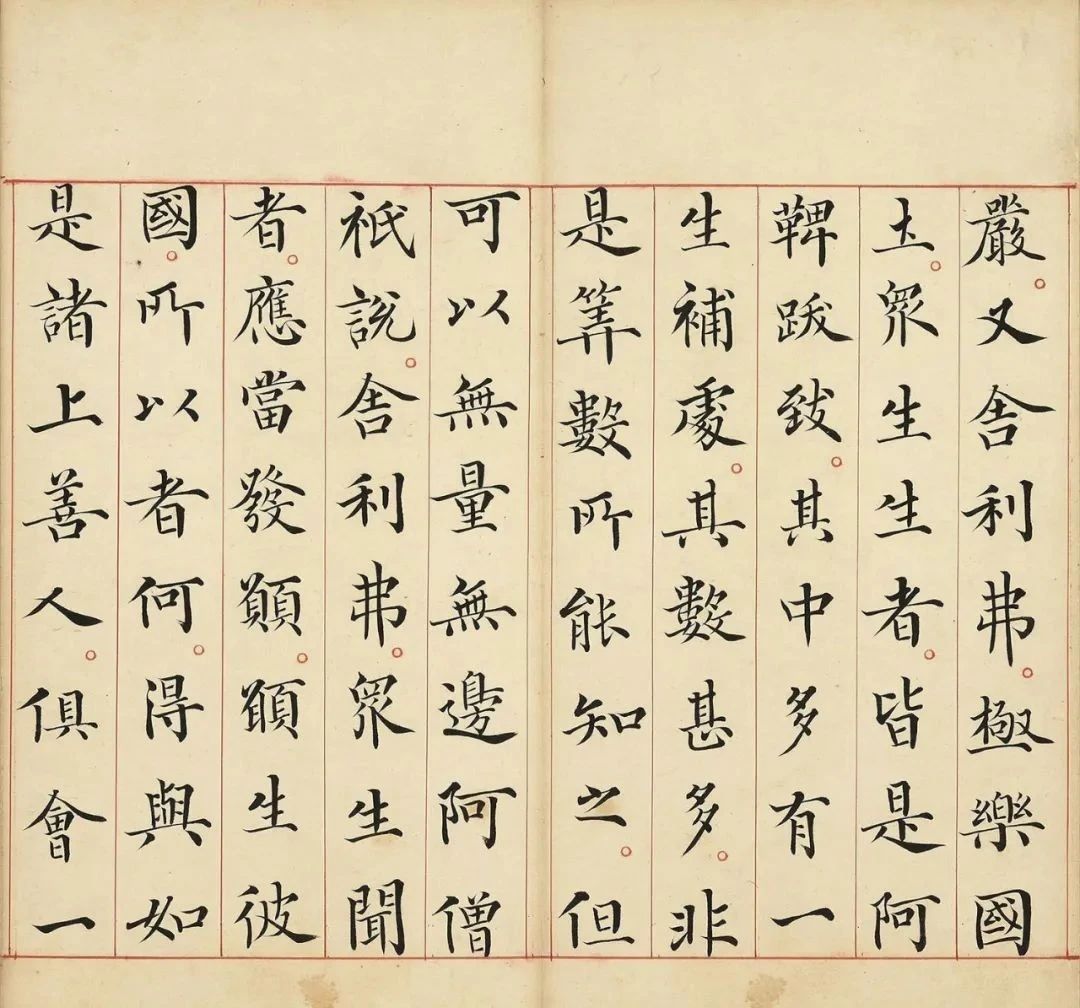 嚴。又舍利弗。極樂國
土。眾生生者。皆是阿
鞞跋致。其中多有一
生補處。其數甚多。非
是筭數所能知之。但
可以無量無邊阿僧
祇說。舍利弗。眾生聞
者。應當發願。願生彼
國。所以者何。得與如
是諸上善人。俱會一